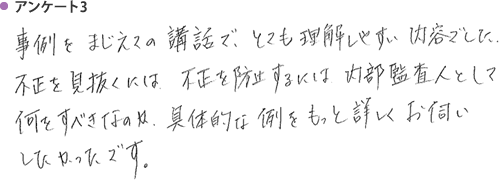 アンケート3
事例をまじえての講話で、とても理解しやすい内容でした。
不正を見抜くには 不正を防止するには 内部監査人として
何をすべきなのか、具体的な例をもっと詳しくお伺い
したかったです。